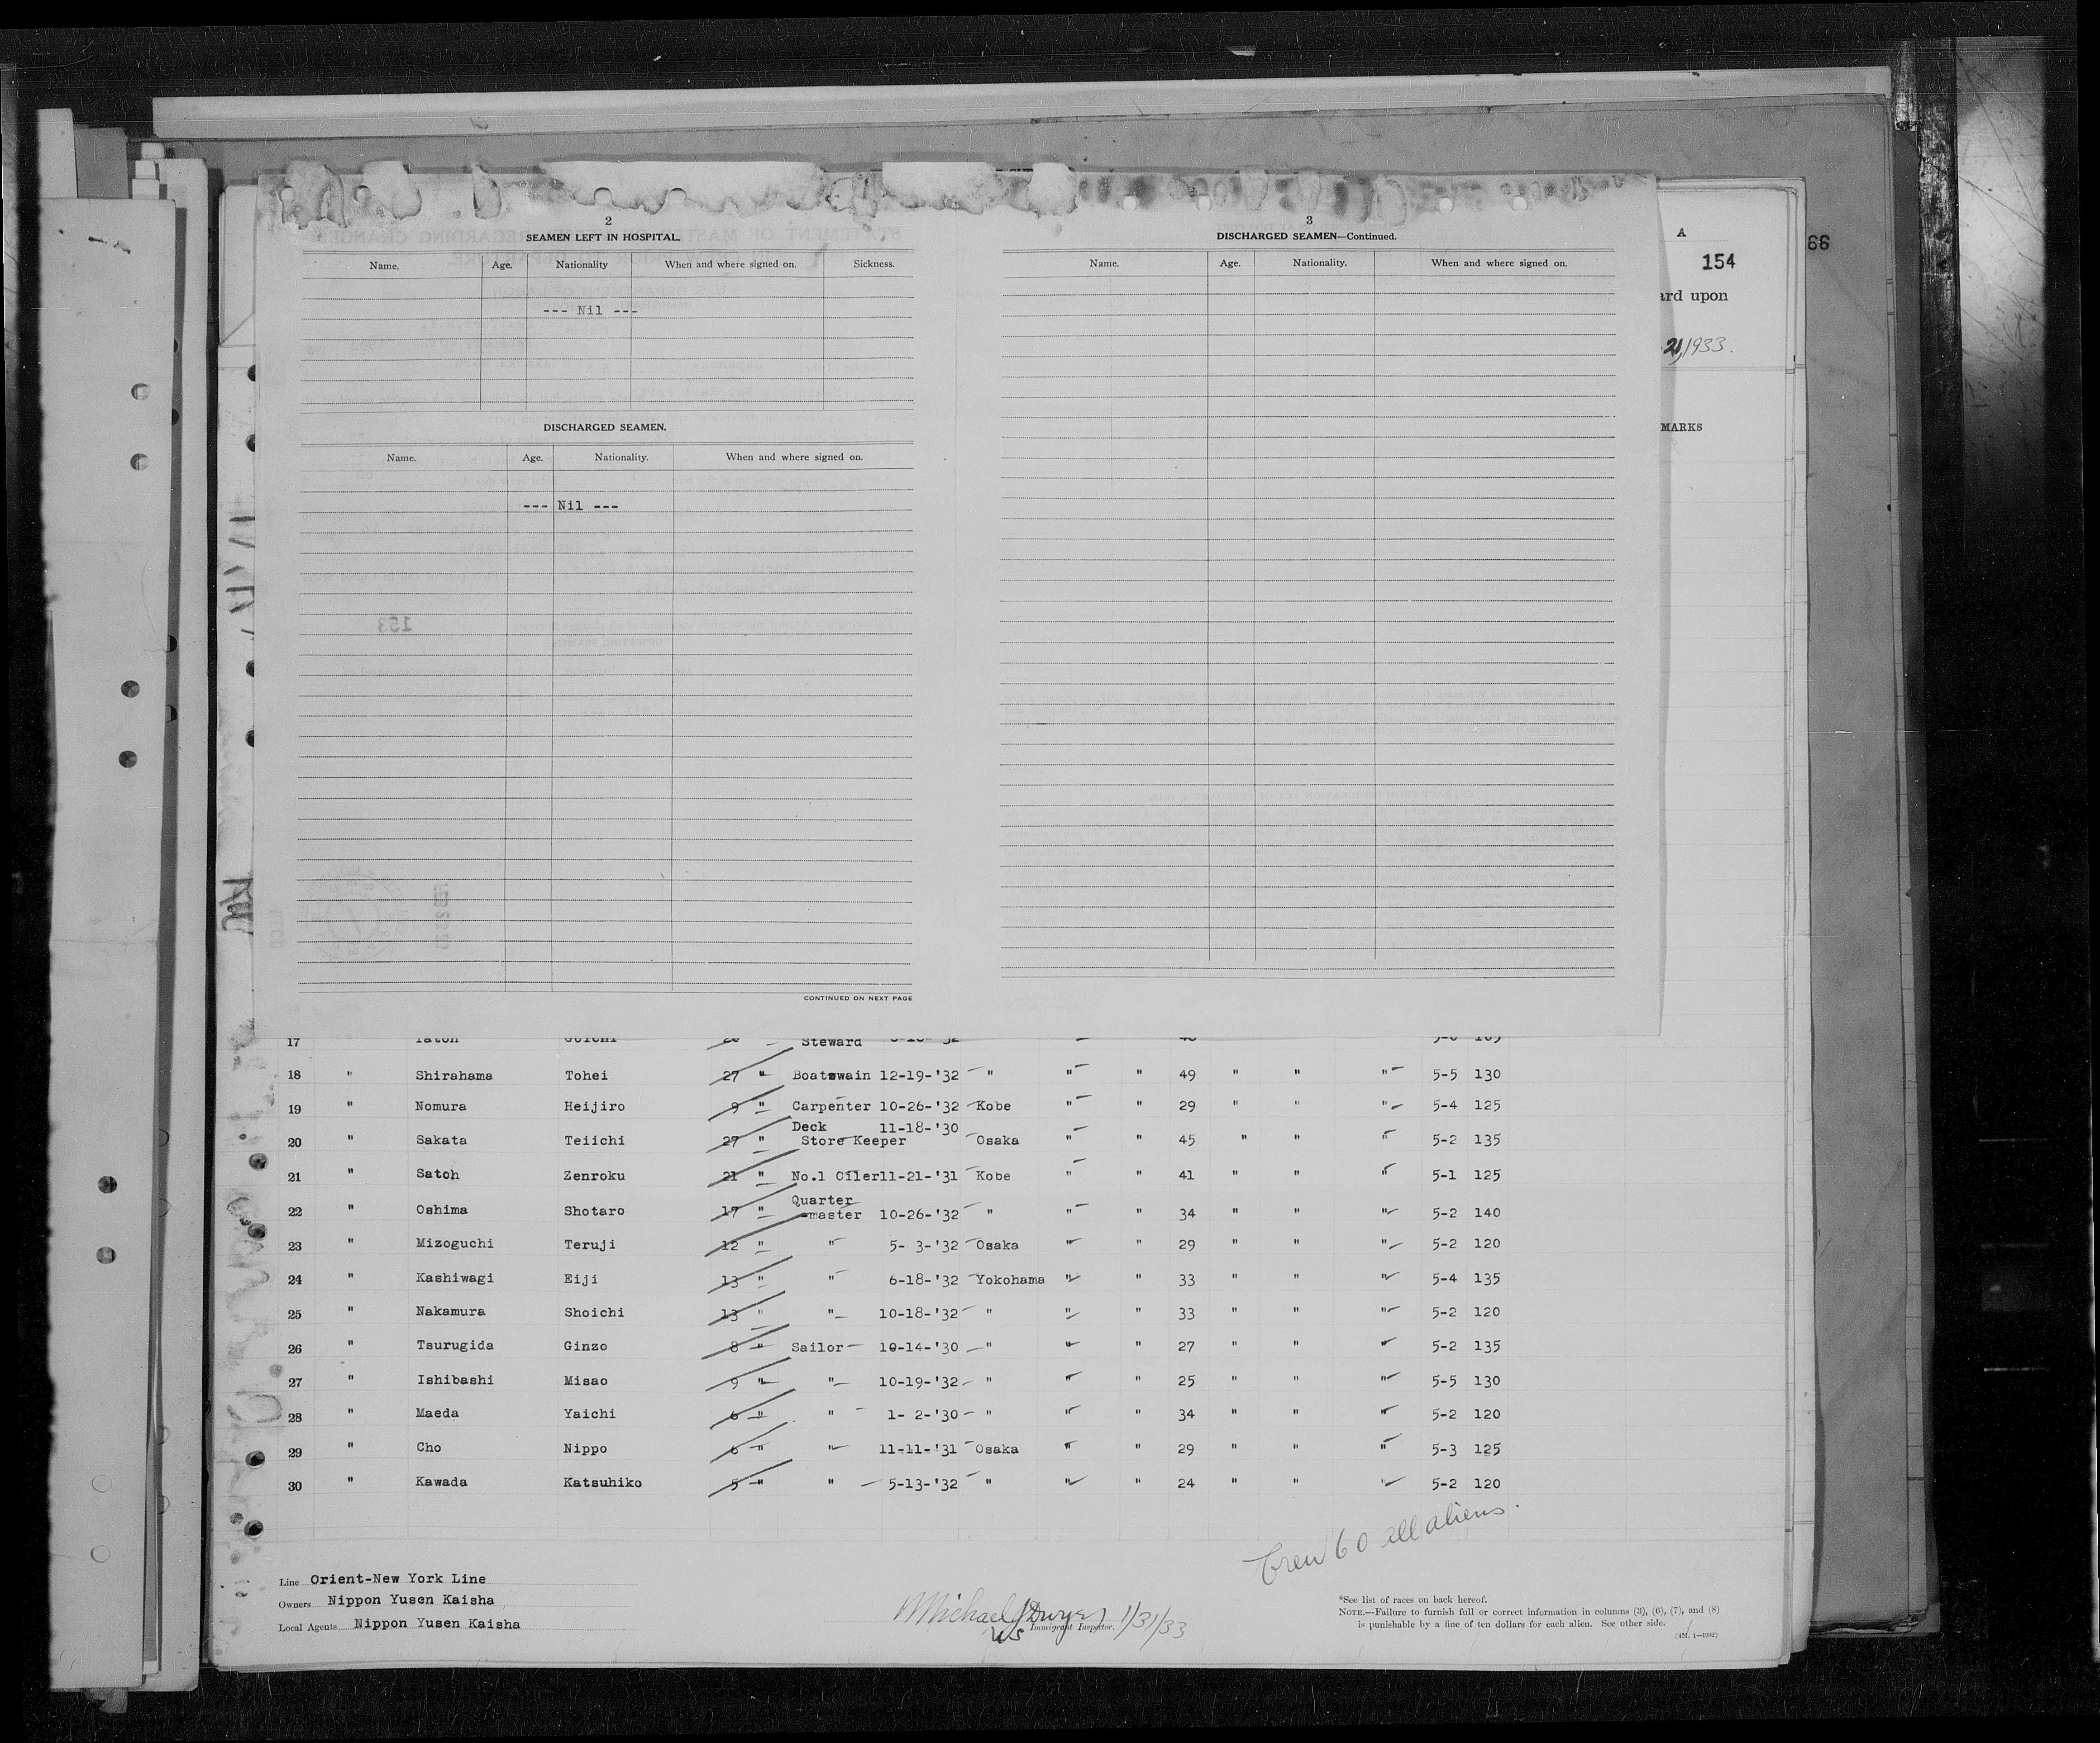 2
SEAMEN LEFT IN HOSPITAL.
Name. Age. Nationality When and where signed on. Sickness.
--- Nil ---
DISCHARGED SEAMEN.
Name. Age. Nationality. When and where signed on.
--- Nil ---
CONTINUED ON NEXT PAGE
3
DISCHARGED SEAMEN—Continued.
Name. Age. Nationality. When and where signed on.
A
154
66
ard upon
21, 1933.
MARKS
153
17 Steward
18 " Shirahama Tohei 27 " Boatswain 12-19-'32 " " " 49 " " " 5-5 130
19 " Nomura Heijiro 9 " Carpenter 10-26-'32 Kobe " " 29 " " " 5-4 125
Deck 11-18-'30
20 " Sakata Teiichi 27 " Store Keeper Osaka " " 45 " " " 5-2 135
21 " Satoh Zenroku 21 " No.1 Oiler 11-21-'31 Kobe " " 41 " " " 5-1 125
Quarter
22 " Oshima Shotaro 17 " -master 10-26-'32 " " " 34 " " " 5-2 140
23 " Mizoguchi Teruji 12 " " 5- 3-'32 Osaka " " 29 " " " 5-2 120
24 " Kashiwagi Eiji 13 " " 6-18-'32 Yokohama " " 33 " " " 5-4 135
25 " Nakamura Shoichi 13 " " 10-18-'32 " " " 33 " " " 5-2 120
26 " Tsurugida Ginzo 8 " Sailor 10-14-'30 " " " 27 " " " 5-2 135
27 " Ishibashi Misao 9 " " 10-19-'32 " " " 25 " " " 5-5 130
28 " Maeda Yaichi 6 " " 1- 2-'30 " " " 34 " " " 5-2 120
29 " Cho Nippo 6 " " 11-11-'31 Osaka " " 29 " " " 5-3 125
30 " Kawada Katsuhiko 5 " " 5-13-'32 " " " 24 " " " 5-2 120
Crew 60 all aliens.
Line Orient-New York Line
Owners Nippon Yusen Kaisha
Local Agents Nippon Yusen Kaisha
Michael J Dwyer 1/31/33
US Immigrant Inspector.
*See list of races on back hereof.
NOTE.—Failure to furnish full or correct information in columns (3), (6), (7), and (8)
is punishable by a fine of ten dollars for each alien. See other side.
(4M. 1—1932)